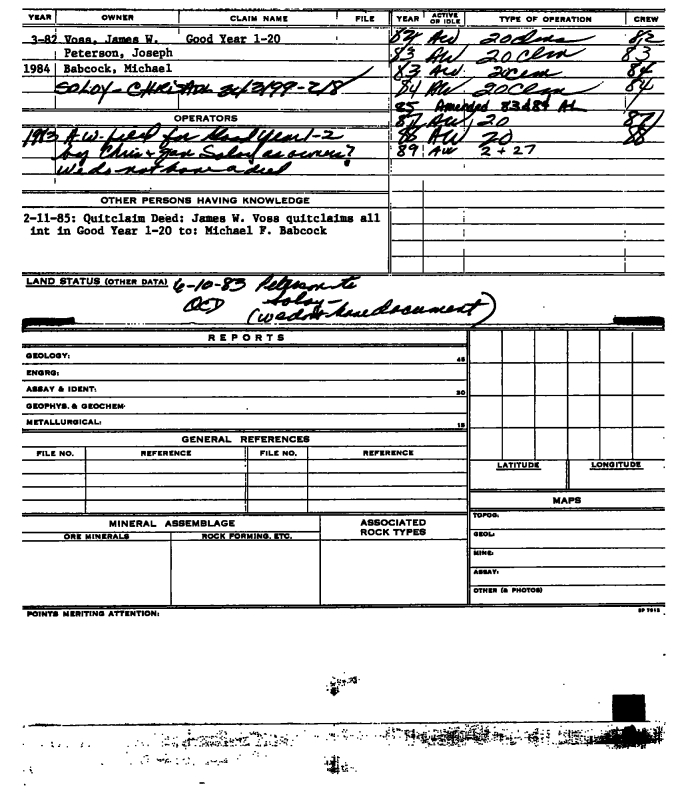 YEAR OWNER CLAIM NAME FILE YEAR ACTIVE OR IDLE TYPE OF OPERATION CREW
3-82 Voss, James W. Good Year 1-20 82 AW 20 Clms 82
Peterson, Joseph 83 AW 20 Clm 83
1984 Babcock, Michael 83 AW 20 Clm 84
SOLOY - CHRIS 84 AW 20 Clm 84
85 Amended 83 & 84 AL
OPERATORS 87 AW 20 87
A.W. filed for Good Year 1-2 88 AW 20 88
by Chris + Jan Soloy as owners? 89 AW 2 + 27
We do not have a deed
OTHER PERSONS HAVING KNOWLEDGE
2-11-85: Quitclaim Deed: James W. Voss quitclaims all
int in Good Year 1-20 to: Michael F. Babcock
LAND STATUS (OTHER DATA) 6-10-83 Peterson to
QCD Soloy -
(we don't have document)
REPORTS
GEOLOGY: 45
ENGRG:
ASSAY & IDENT: 30
GEOPHYS. & GEOCHEM.
METALLURGICAL: 15
GENERAL REFERENCES
FILE NO. REFERENCE FILE NO. REFERENCE
LATITUDE LONGITUDE
MAPS
MINERAL ASSEMBLAGE ASSOCIATED ROCK TYPES
ORE MINERALS ROCK FORMING, ETC.
TOPOG:
GEOL:
MINE:
ASSAY:
OTHER (& PHOTOS)
POINTS MERITING ATTENTION: SP 7615